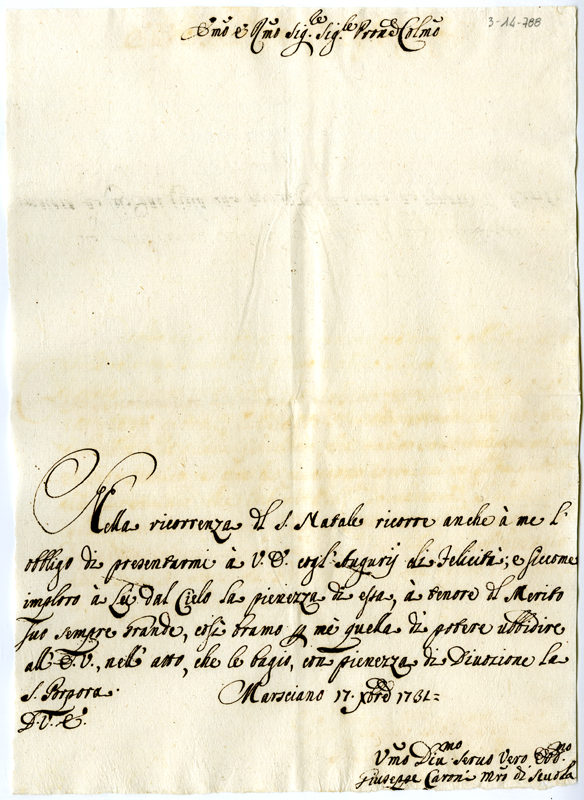 3-14-788
Emo e Rmo Sig.re Sig.re Prone Colmo
Nella ricorrenza di S. Natale ricorre anche à me l'
obbligo di presentarmi à V. E. cogl'Augurij di Felicità; e siccome
imploro à Lei dal Cielo la pienezza di essa, à tenore di Merito
suo sempre grande, così bramo p mè quella di potere ubbidire
all'E. V., nell'atto, che le bagio, con pienezza di Divozione la
S. Porpora. Marsciano 17. Xbre 1761=
D. V. E.
Vmo Divmo Servo Vero Obbmo
Giuseppe Caroni Mro di Scuola